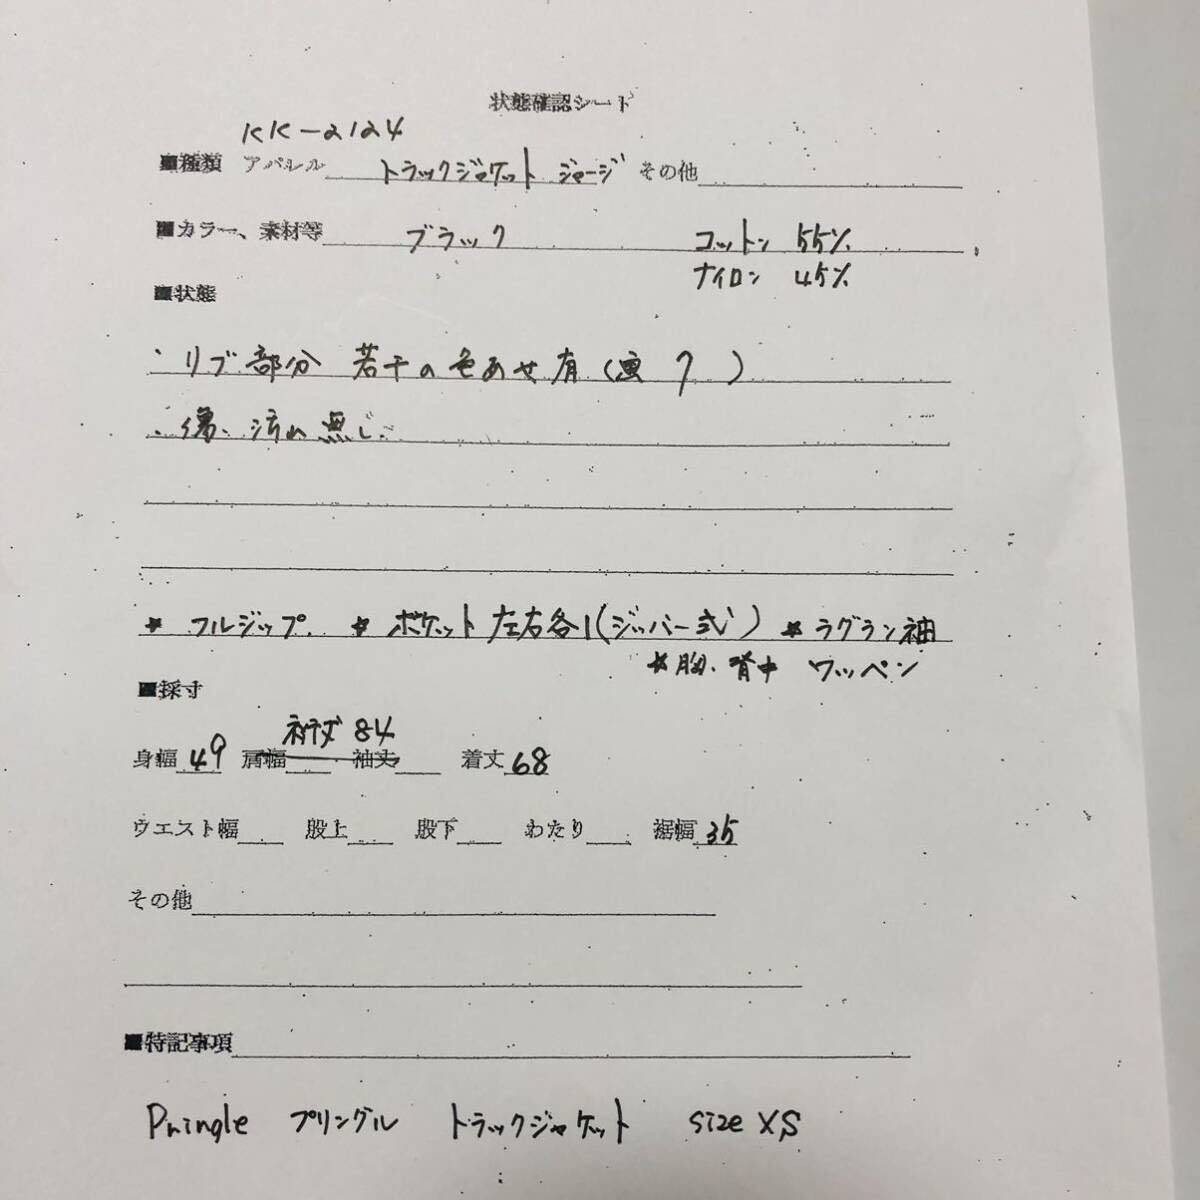 状態確認シート
KK-2124
■種類 アパレル トラックジャケット ジャージ その他
■カラー、素材等 ブラック コットン 55%
ナイロン 45%
■状態
・リブ部分 若干の色あせ有(画 7 )
・傷、汚れ無し。
★ フルジップ ★ ポケット左右各1(ジッパー式) ★ ラグラン袖
★胸、背中 ワッペン
■採寸
裄丈 84
身幅 49 肩幅 袖丈 着丈 68
ウエスト幅 股上 股下 わたり 裾幅 35
その他
■特記事項
Pringle プリングル トラックジャケット size XS